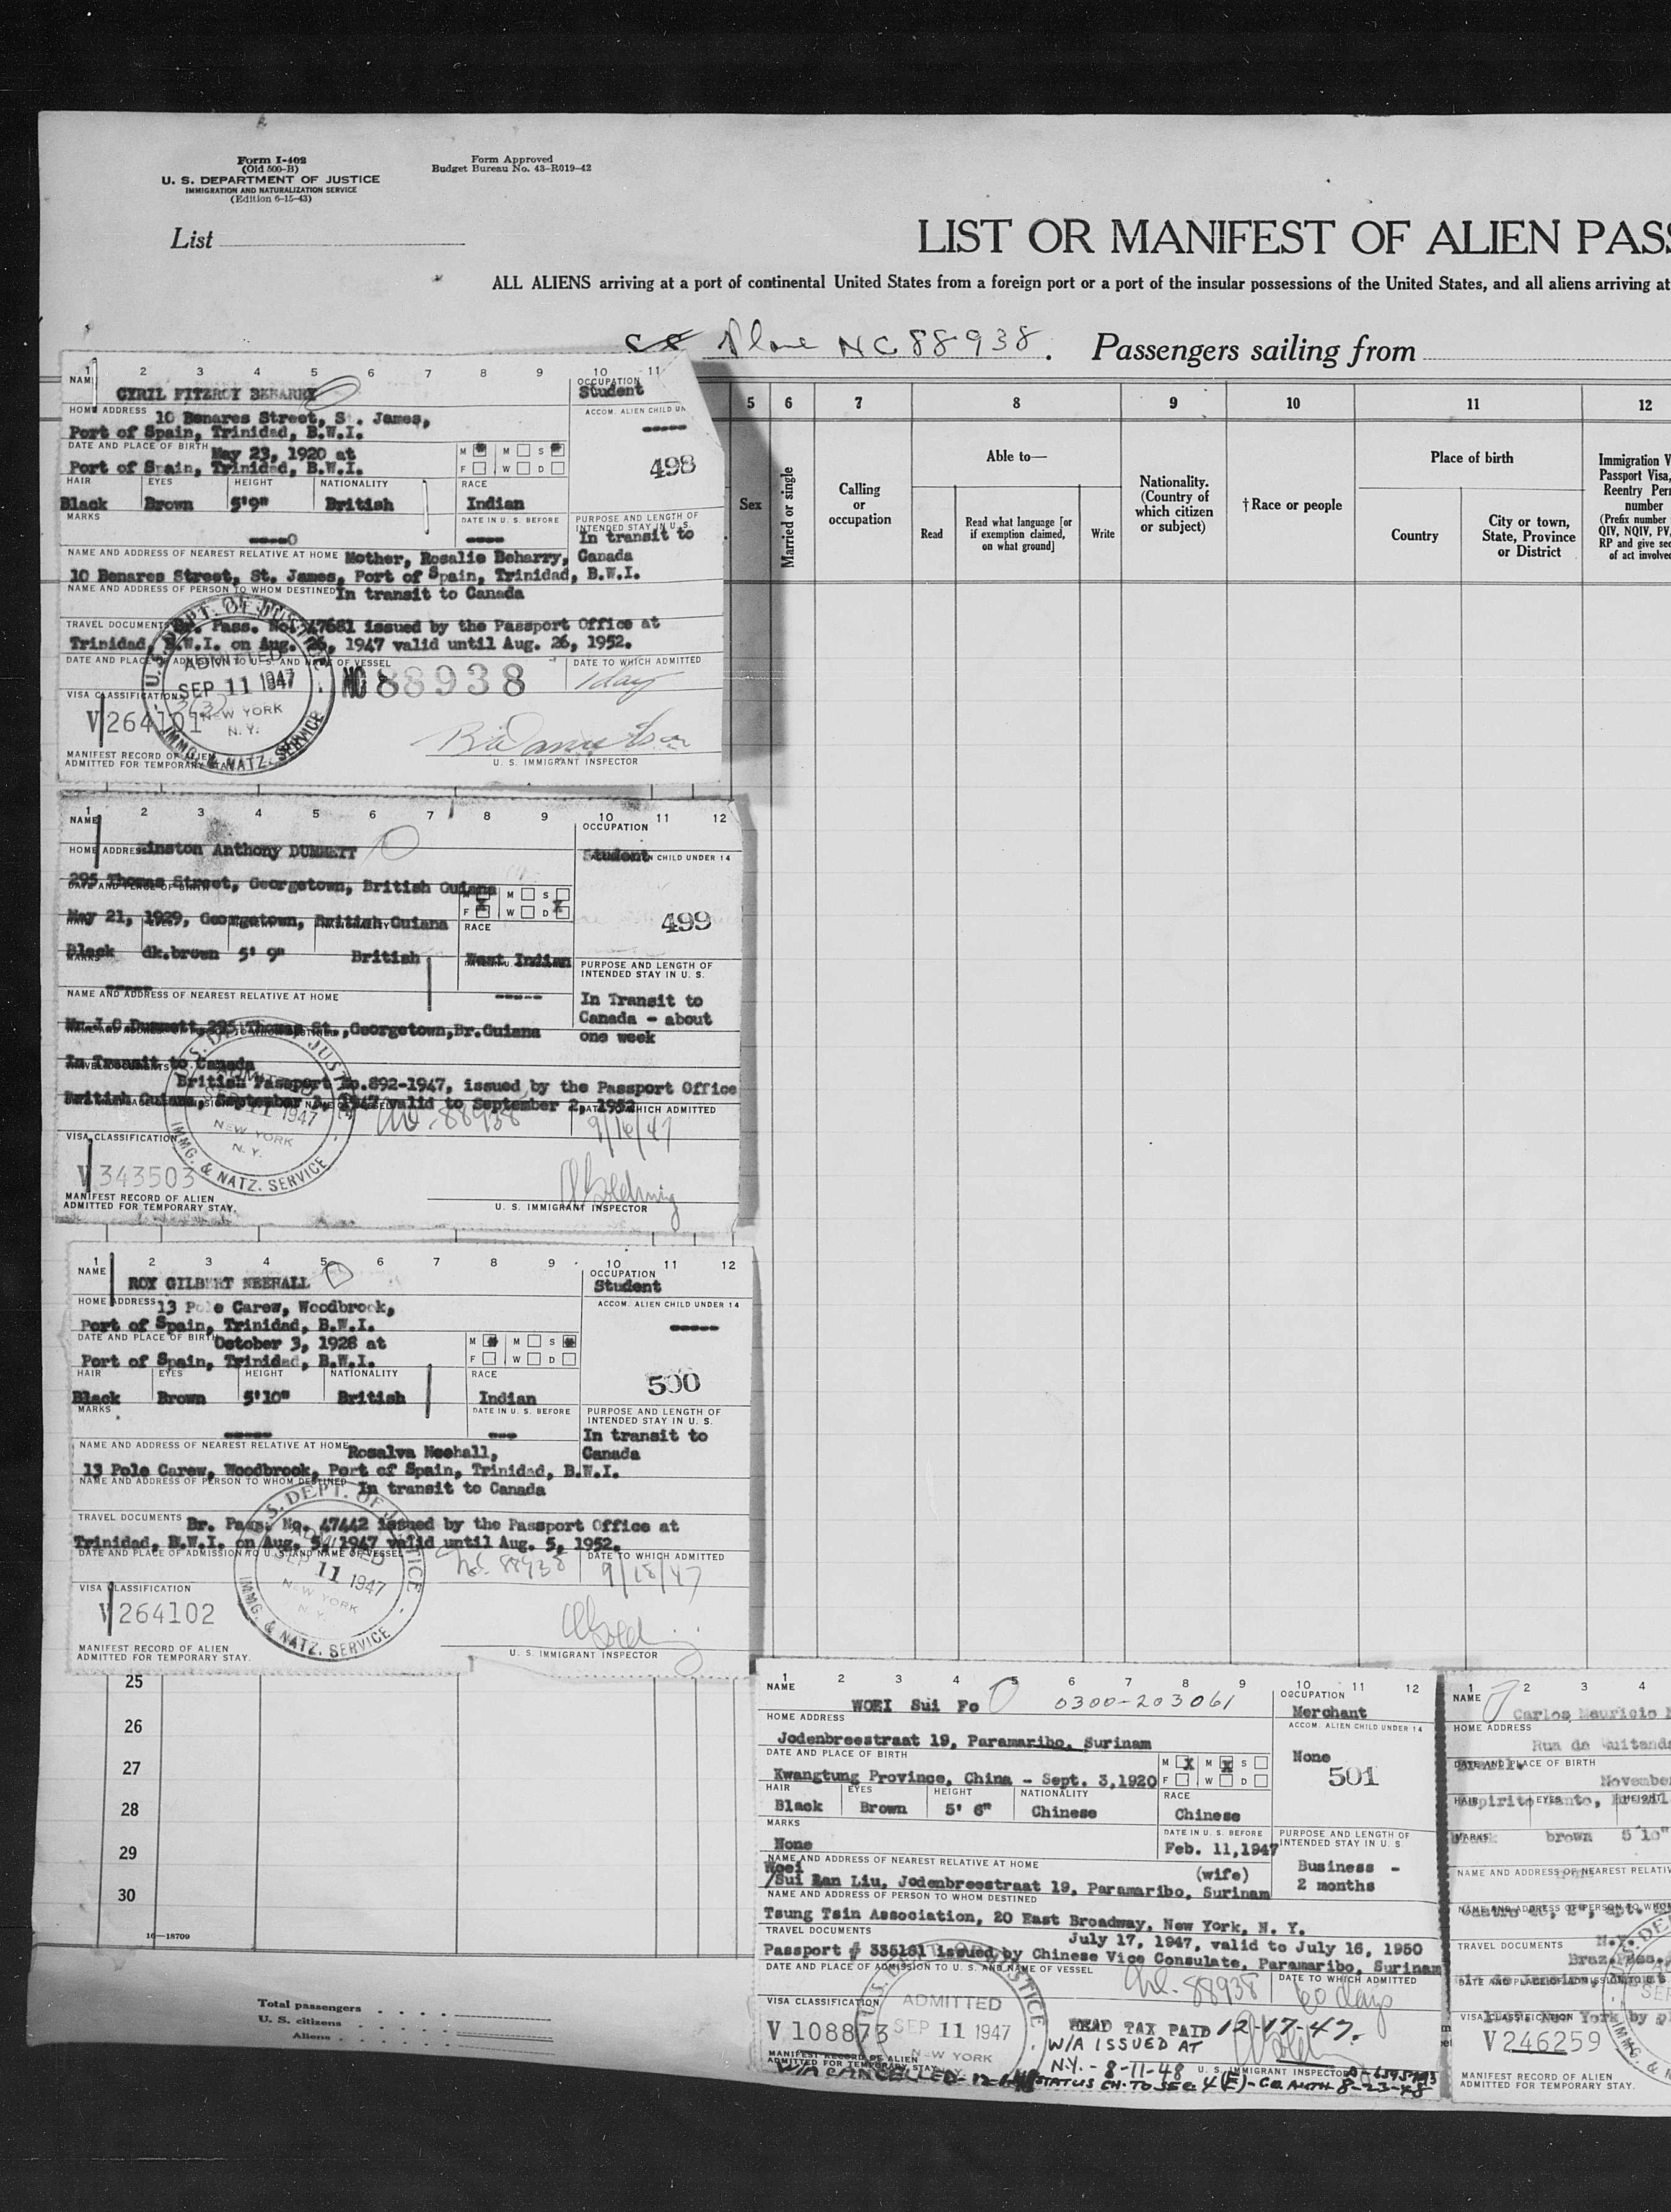 Form I-402
(Old 500-B)
U. S. DEPARTMENT OF JUSTICE
IMMIGRATION AND NATURALIZATION SERVICE
(Edition 6-15-43)
Form Approved
Budget Bureau No. 43-R019-42
List
LIST OR MANIFEST OF ALIEN PASS
ALL ALIENS arriving at a port of continental United States from a foreign port or a port of the insular possessions of the United States, and all aliens arriving at
Plane NC 88938. Passengers sailing from
5 6 7 8 9 10 11 12
Sex
Married or single
Calling or occupation
Able to—
Read
Read what language [or if exemption claimed, on what ground]
Write
Nationality. (Country of which citizen or subject)
† Race or people
Place of birth
Country
City or town, State, Province or District
Immigration V
Passport Visa,
Reentry Per
number
(Prefix number
QIV, NQIV, PV,
RP and give sec
of act involve
1 2 3 4 5 6 7 8 9 10 11
NAM
CYRIL FITZROY BEHARRY
OCCUPATION
Student
HOME ADDRESS 10 Benares Street, St. James,
Port of Spain, Trinidad, B.W.I.
ACCOM. ALIEN CHILD UN
-----
DATE AND PLACE OF BIRTH May 23, 1920 at
Port of Spain, Trinidad, B.W.I.
M M S
F W D
498
HAIR EYES HEIGHT NATIONALITY RACE
Black Brown 5'9" British Indian
MARKS
DATE IN U. S. BEFORE
----
PURPOSE AND LENGTH OF INTENDED STAY IN U. S.
In transit to
Canada
NAME AND ADDRESS OF NEAREST RELATIVE AT HOME Mother, Rosalie Beharry,
10 Benares Street, St. James, Port of Spain, Trinidad, B.W.I.
NAME AND ADDRESS OF PERSON TO WHOM DESTINED In transit to Canada
TRAVEL DOCUMENTS Br. Pass. No. 47681 issued by the Passport Office at
Trinidad, B.W.I. on Aug. 26, 1947 valid until Aug. 26, 1952.
DATE AND PLACE OF ADMISSION TO U. S. AND NAME OF VESSEL
DATE TO WHICH ADMITTED
NC 88938
1 day
U.S. DEPT. OF JUSTICE
ADMITTED
SEP 11 1947
NEW YORK
N. Y.
IMMG. & NATZ. SERVICE
VISA CLASSIFICATION
3(3)
V 264101
MANIFEST RECORD OF ALIEN
ADMITTED FOR TEMPORARY STAY.
U. S. IMMIGRANT INSPECTOR
1 2 3 4 5 6 7 8 9 10 11 12
NAME
OCCUPATION
HOME ADDRESS
inston Anthony DUMMETT
Student
N CHILD UNDER 14
295 Thomas Street, Georgetown, British Guiana
DATE AND PLACE OF BIRTH
May 21, 1929, Georgetown, British Guiana
M M S
F W D
499
RACE
Black dk.brown 5' 9" British West Indian
MARKS
PURPOSE AND LENGTH OF INTENDED STAY IN U. S.
-----
NAME AND ADDRESS OF NEAREST RELATIVE AT HOME
-----
In Transit to
Canada - about
one week
Mr.J C Dummett 295 Thomas St.,Georgetown,Br.Guiana
In Transit to Canada
TRAVEL DOCUMENTS
British Passport No.892-1947, issued by the Passport Office
British Guiana, September 3, 1947 valid to September 2, 1952
DATE TO WHICH ADMITTED
NC. 88938
9/16/47
1947
NEW YORK
N. Y.
IMMG. & NATZ. SERVICE
VISA CLASSIFICATION
V 343503
A Golding
MANIFEST RECORD OF ALIEN
ADMITTED FOR TEMPORARY STAY.
U. S. IMMIGRANT INSPECTOR
1 2 3 4 5 6 7 8 9 10 11 12
NAME
ROY GILBERT NEEHALL
OCCUPATION
Student
HOME ADDRESS 13 Pole Carew, Woodbrook,
Port of Spain, Trinidad, B.W.I.
ACCOM. ALIEN CHILD UNDER 14
-----
DATE AND PLACE OF BIRTH October 3, 1928 at
Port of Spain, Trinidad, B.W.I.
M M S
F W D
500
HAIR EYES HEIGHT NATIONALITY RACE
Black Brown 5'10" British Indian
MARKS
DATE IN U. S. BEFORE
PURPOSE AND LENGTH OF INTENDED STAY IN U. S.
-----
---
In transit to
Canada
NAME AND ADDRESS OF NEAREST RELATIVE AT HOME Rosalva Neehall,
13 Pole Carew, Woodbrook, Port of Spain, Trinidad, B.W.I.
NAME AND ADDRESS OF PERSON TO WHOM DESTINED In transit to Canada
TRAVEL DOCUMENTS Br. Pass. No. 47442 issued by the Passport Office at
Trinidad, B.W.I. on Aug. 5, 1947 valid until Aug. 5, 1952.
DATE AND PLACE OF ADMISSION TO U. S. AND NAME OF VESSEL
DATE TO WHICH ADMITTED
NC. 88938
9/18/47
S. DEPT. OF JUSTICE
ADMITTED
SEP 11 1947
NEW YORK
N. Y.
IMMG. & NATZ. SERVICE
VISA CLASSIFICATION
V 264102
MANIFEST RECORD OF ALIEN
ADMITTED FOR TEMPORARY STAY.
U. S. IMMIGRANT INSPECTOR
25
26
27
28
29
30
16—18709
Total passengers
U. S. citizens
Aliens
1 2 3 4 5 6 7 8 9 10 11 12
NAME
WOEI Sui Fo
0300-203061
OCCUPATION
Merchant
HOME ADDRESS
Jodenbreestraat 19, Paramaribo, Surinam
ACCOM. ALIEN CHILD UNDER 14
None
DATE AND PLACE OF BIRTH
Kwangtung Province, China - Sept. 3,1920
M X M X S
F W D
501
HAIR EYES HEIGHT NATIONALITY RACE
Black Brown 5' 6" Chinese Chinese
MARKS
None
DATE IN U. S. BEFORE
Feb. 11,1947
PURPOSE AND LENGTH OF INTENDED STAY IN U. S.
Business -
2 months
NAME AND ADDRESS OF NEAREST RELATIVE AT HOME
Woei (wife)
/Sui Man Liu, Jodenbreestraat 19, Paramaribo, Surinam
NAME AND ADDRESS OF PERSON TO WHOM DESTINED
Tsung Tsin Association, 20 East Broadway, New York, N. Y.
TRAVEL DOCUMENTS
July 17, 1947, valid to July 16, 1950
Passport # 335181 issued by Chinese Vice Consulate, Paramaribo, Surinam
DATE AND PLACE OF ADMISSION TO U. S. AND NAME OF VESSEL
DATE TO WHICH ADMITTED
NC. 88938
60 days
ADMITTED
SEP 11 1947
NEW YORK
VISA CLASSIFICATION
V 108873
HEAD TAX PAID 12-17-47.
W/A ISSUED AT
N.Y. - 8-11-48
MANIFEST RECORD OF ALIEN
ADMITTED FOR TEMPORARY STAY
U. S. IMMIGRANT INSPECTOR
W/A CANCELLED
STATUS CH. TO SEC. 4(E) - C.O. AUTH. 8-23-48
1 2 3 4
NAME
Carlos Mauricio
HOME ADDRESS
Rua da Quitanda
PLACE OF BIRTH
November
brown 5'10"
NAME AND ADDRESS OF NEAREST RELATIV
TRAVEL DOCUMENTS
N.Y.
Braz.Pass.
VISA CLASSIFICATION
New York by p
V 246259
MANIFEST RECORD OF ALIEN
ADMITTED FOR TEMPORARY STAY.